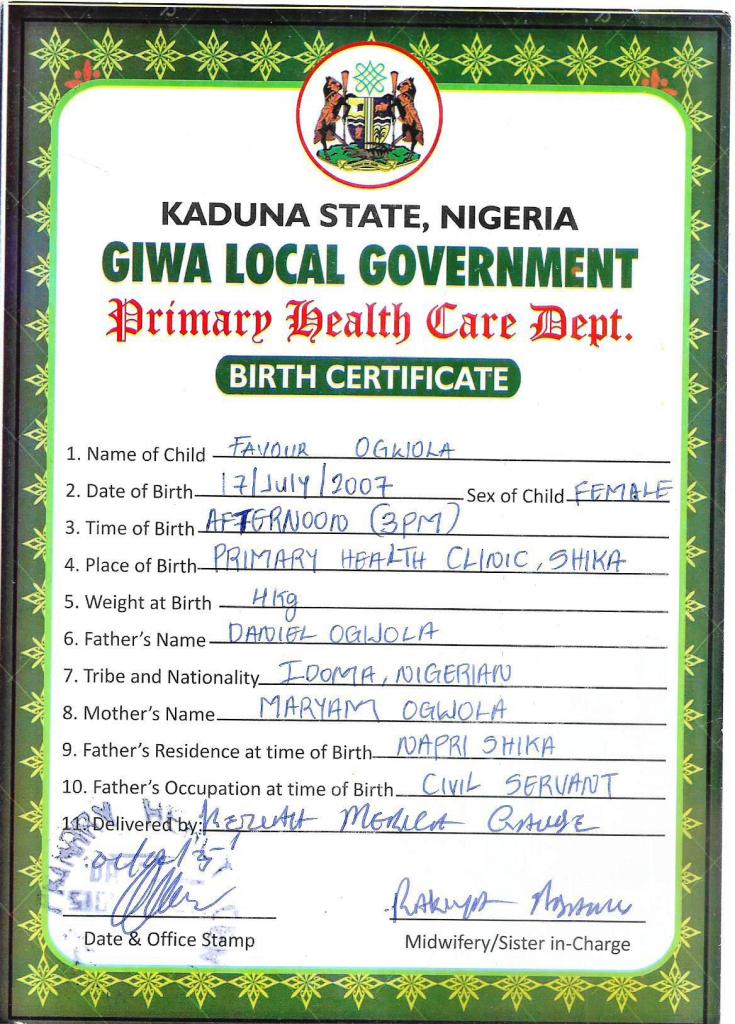 KADUNA STATE, NIGERIA
GIWA LOCAL GOVERNMENT
Primary Health Care Dept.
BIRTH CERTIFICATE
1. Name of Child FAVOUR OGWOLA
2. Date of Birth 17/July/2007 Sex of Child FEMALE
3. Time of Birth AFTERNOON (3PM)
4. Place of Birth PRIMARY HEALTH CLINIC, SHIKA
5. Weight at Birth 4kg
6. Father's Name DANIEL OGWOLA
7. Tribe and Nationality IDOMA, NIGERIAN
8. Mother's Name MARYAM OGWOLA
9. Father's Residence at time of Birth NAPRI SHIKA
10. Father's Occupation at time of Birth CIVIL SERVANT
11. Delivered by:
Date & Office Stamp Midwifery/Sister in-Charge